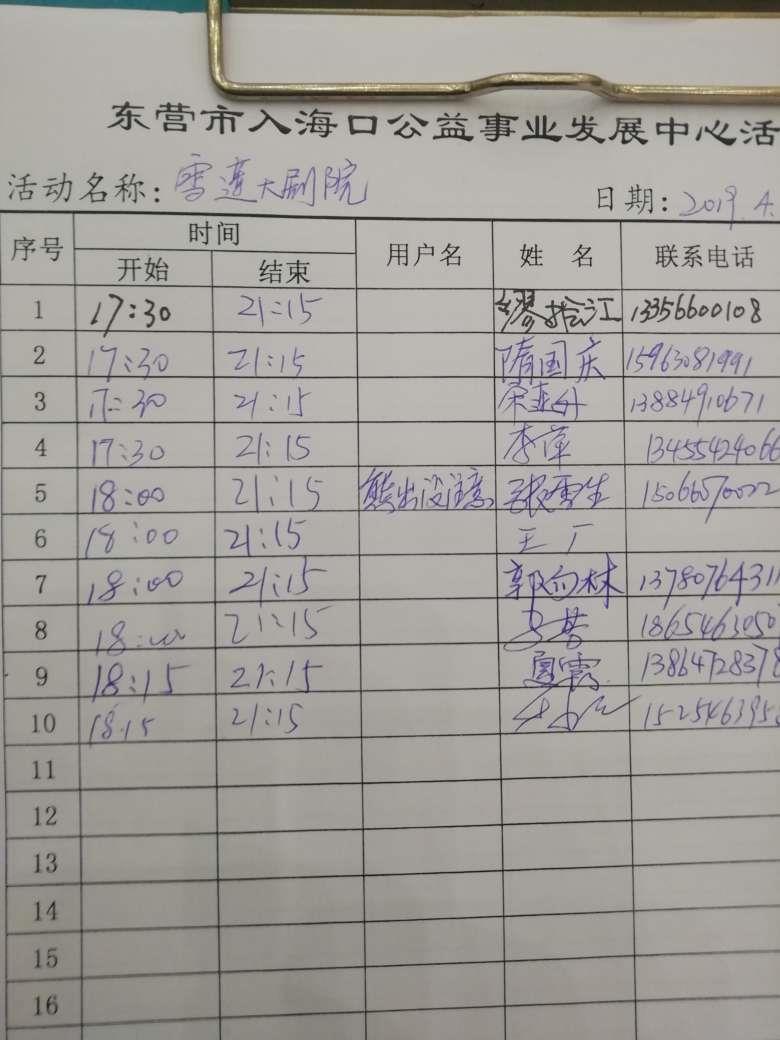 东营市入海口公益事业发展中心活
活动名称：雪莲大剧院 日期：2019.4.
序号 时间 用户名 姓名 联系电话
开始 结束
1 17:30 21:15 缪拴江 13356600108
2 17:30 21:15 隋国庆 15963081991
3 17:30 21:15 13884910671
4 17:30 21:15 李萍 13455424066
5 18:00 21:15 熊出没注意 张秀生 15066570022
6 18:00 21:15 王厂
7 18:00 21:15 郭向林 13780764311
8 18:00 21:15 1865463050
9 18:15 21:15 夏霞 13864728378
10 18:15 21:15 1525463953
11
12
13
14
15
16